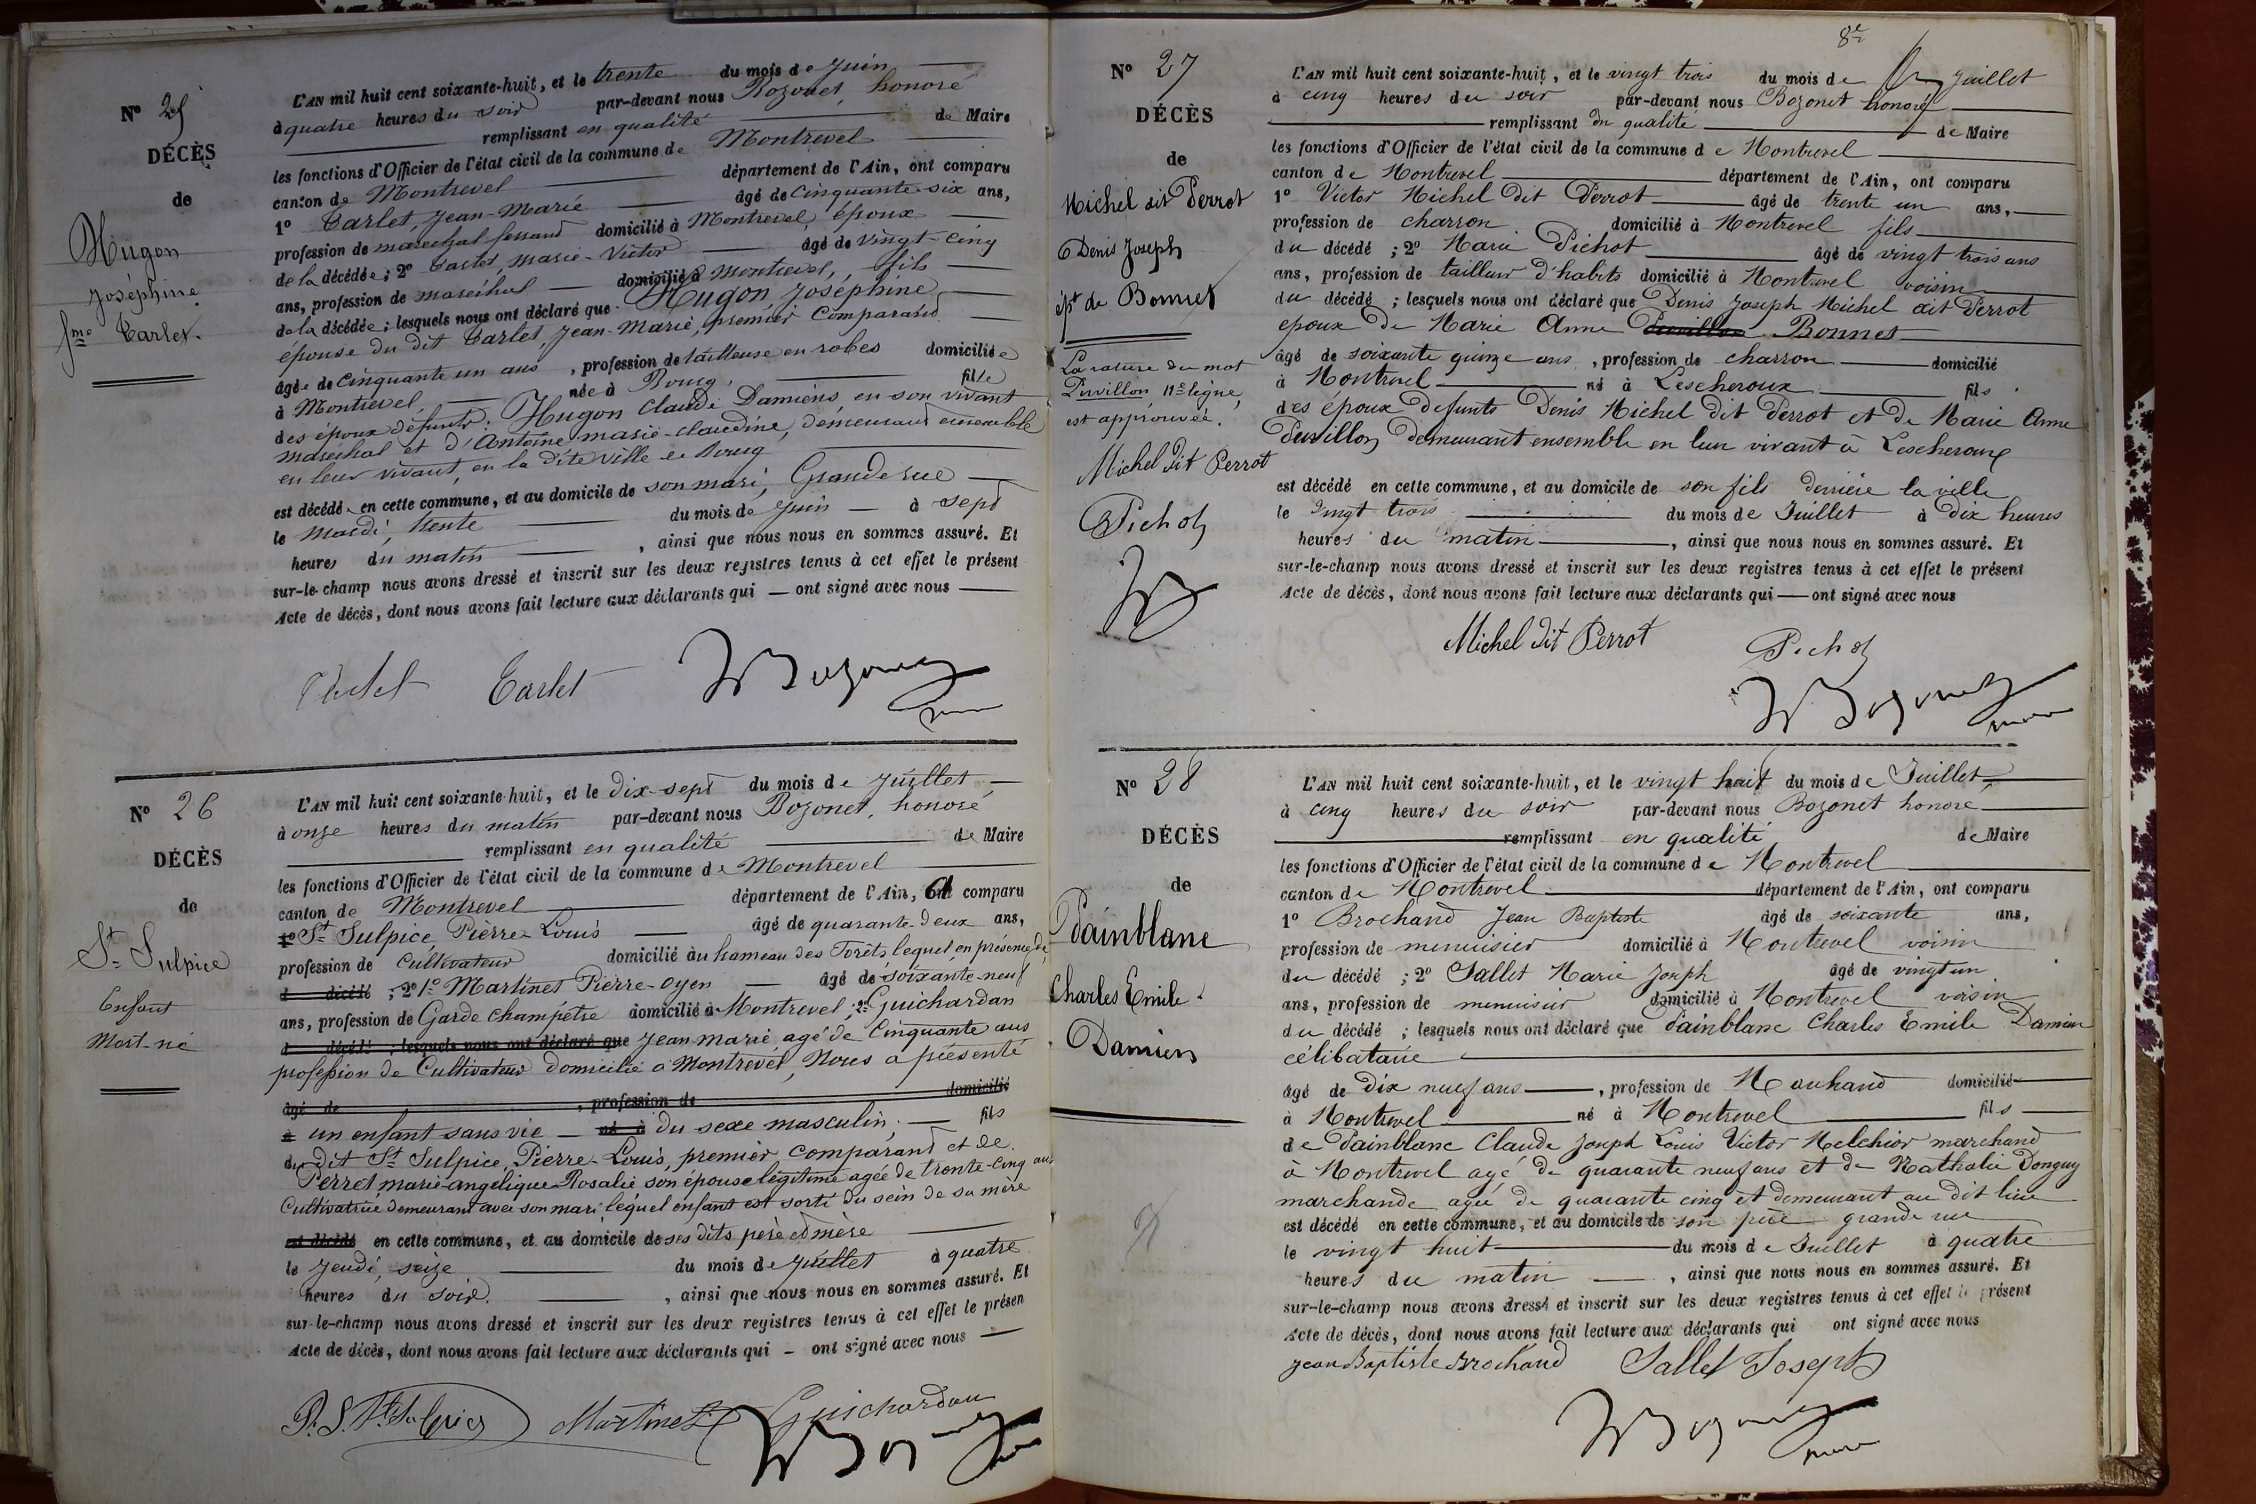 N° 25
DÉCÈS
de
Hugon
Joséphine
fme Carlet.
L'AN mil huit cent soixante-huit, et le trente du mois de juin
à quatre heures du soir par-devant nous Bozonet, honoré
remplissant en qualité de Maire
les fonctions d'Officier de l'état civil de la commune de Montrevel
canton de Montrevel département de l'Ain, ont comparu
1° Carlet, Jean-Marie âgé de cinquante-six ans,
profession de maréchal ferrant domicilié à Montrevel, époux
de la décédée; 2° Carlet, Marie-Victor âgé de vingt-cinq
ans, profession de maréchal domicilié à Montrevel, fils
de la décédée; lesquels nous ont déclaré que Hugon Joséphine
épouse du dit Carlet, Jean-Marie, premier comparant
âgée de cinquante un ans, profession de tailleuse en robes domiciliée
à Montrevel née à Bourg, fille
des époux défunts: Hugon Claude Damiens, en son vivant
maréchal et d'Antoine marie-claudine, demeurant ensemble
en leur vivant, en la dite ville de Bourg
est décédée en cette commune, et au domicile de son mari, Grande rue
le mardi, trente du mois de juin à sept
heures du matin, ainsi que nous nous en sommes assuré. Et
sur-le-champ nous avons dressé et inscrit sur les deux registres tenus à cet effet le présent
Acte de décès, dont nous avons fait lecture aux déclarants qui — ont signé avec nous
Carlet Carlet Bozonet
N° 26
DÉCÈS
de
St Sulpice
Enfant
Mort-né
L'AN mil huit cent soixante-huit, et le dix-sept du mois de juillet
à onze heures du matin par-devant nous Bozonet, honoré
remplissant en qualité de Maire
les fonctions d'Officier de l'état civil de la commune de Montrevel
canton de Montrevel département de l'Ain, a comparu
1° St Sulpice, Pierre Louis âgé de quarante-deux ans,
profession de cultivateur domicilié au hameau des Torêts lequel, en présence de
d décédé; 2° 1° Martinet Pierre-Oyen âgé de soixante-neuf
ans, profession de Garde champêtre domicilié à Montrevel, 2° Guichardan
d décédé; lesquels nous ont déclaré que Jean marie, agé de Cinquante ans
profession de Cultivateur domicilié à Montrevel, Nous a présenté
âgé de , profession de domicilié
à un enfant sans vie né à du sexe masculin, fils
du dit St Sulpice, Pierre-Louis, premier comparant et de
Perret marie-angélique Rosalie son épouse légitime agée de trente-cinq ans
Cultivatrice demeurant avec son mari lequel enfant est sorti du sein de sa mère
est décédé en cette commune, et au domicile de ses dits père et mère
le jeudi, seize du mois de juillet à quatre
heures du soir, ainsi que nous nous en sommes assuré. Et
sur-le-champ nous avons dressé et inscrit sur les deux registres tenus à cet effet le présen
Acte de décès, dont nous avons fait lecture aux déclarants qui — ont signé avec nous
P. L. St Sulpice Martinet Guichardan
Bozonet
8e
N° 27
DÉCÈS
de
Michel dit Perrot
Denis Joseph
épx de Bonnet
La rature du mot
Puvillon 11e ligne,
est approuvée.
Michel dit Perrot
Pichot
L'AN mil huit cent soixante-huit, et le vingt trois du mois de Juillet
à cinq heures du soir par-devant nous Bozonet honoré
remplissant en qualité de Maire
les fonctions d'Officier de l'état civil de la commune de Montrevel
canton de Montrevel département de l'Ain, ont comparu
1° Victor Michel dit Perrot âgé de trente un ans,
profession de charron domicilié à Montrevel fils
du décédé; 2° Marie Pichot âgé de vingt trois ans
ans, profession de tailleur d'habits domicilié à Montrevel voisin
du décédé; lesquels nous ont déclaré que Denis Joseph Michel dit Perrot
époux de Marie Anne Puvillon Bonnet
âgé de soixante quinze ans, profession de charron domicilié
à Montrevel né à Lescheroux fils
des époux défunts Denis Michel dit Perrot et de Marie Anne
Puvillon demeurant ensemble en leur vivant à Lescheroux
est décédé en cette commune, et au domicile de son fils derrière la ville
le vingt trois du mois de Juillet à dix heures
heures du matin, ainsi que nous nous en sommes assuré. Et
sur-le-champ nous avons dressé et inscrit sur les deux registres tenus à cet effet le présent
Acte de décès, dont nous avons fait lecture aux déclarants qui — ont signé avec nous
Michel dit Perrot Pichot
Bozonet
N° 28
DÉCÈS
de
Painblanc
Charles Emile
Damien
L'AN mil huit cent soixante-huit, et le vingt huit du mois de Juillet
à cinq heures du soir par-devant nous Bozonet honoré
remplissant en qualité de Maire
les fonctions d'Officier de l'état civil de la commune de Montrevel
canton de Montrevel département de l'Ain, ont comparu
1° Brochand Jean Baptiste âgé de soixante ans,
profession de menuisier domicilié à Montrevel voisin
du décédé; 2° Sallet Marie Joseph âgé de vingt un
ans, profession de menuisier domicilié à Montrevel voisin
du décédé; lesquels nous ont déclaré que Painblanc Charles Emile Damien
célibataire
âgé de dix neuf ans, profession de Marchand domicilié
à Montrevel né à Montrevel fils
de Painblanc Claude Joseph Louis Victor Melchior marchand
à Montrevel agé de quarante neuf ans et de Nathalie Donguy
marchande agée de quarante cinq et demeurant au dit lieu
est décédé en cette commune, et au domicile de son père grande rue
le vingt huit du mois de Juillet à quatre
heures du matin, ainsi que nous nous en sommes assuré. Et
sur-le-champ nous avons dressé et inscrit sur les deux registres tenus à cet effet le présent
Acte de décès, dont nous avons fait lecture aux déclarants qui ont signé avec nous
Jean Baptiste Brochand Sallet Joseph
Bozonet